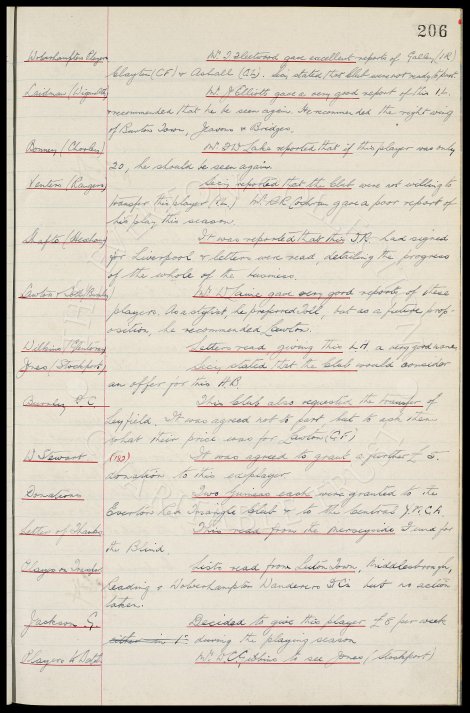 206
Wolverhampton Players Mr. J. Fleetwood gave excellent reports of Galley (I.R.)
Clayton (C.F) & Ashall (O.L). Secy stated that Club were not ready to part.
Laidman (Wigan Ath) Mr. J. Elliott gave a very good report of this I.L.
& recommended that he be seen again. He recommended the right wing
of Buxton Town, Jeavons & Bridges.
Bonney (Chorley) Mr. H. W. Lake reported that if this player was only
20, he should be seen again.
Venters (Rangers) Secy reported that the Club were not willing to
transfer this player (I.L.) Mr. B.R. Cochran gave a poor report of
his play this season.
Shafto (Hesham) It was reported that this I.R. had signed
for Liverpool & letters were read, detailing the progress
of the whole of the business.
Lawton & (Burnley) Mr. W. Laing gave very good reports of these
players. As a stylist he preferred but as a future prop-
osition, he recommended Lawton.
Letters read giving this L.H. a very good name.
Jones (Stockport) Secy stated that the Club would consider
an offer for this H.B.
Burnley F. C. This Club also requested the transfer of
Leyfield. It was agreed not to part but to ask them
what their price was for Lawton (C.F)
W. Stewart (189) It was agreed to grant a further £5.
donation to this ex player.
Donations Two guineas each were granted to the
Everton Red Triangle Club & to the Central Y.M.C.A
Letter of Thanks This read from the Merseyside Fund for
the Blind.
Players on Transfer Lists read from Luton Town, Middlesborough,
Reading & Wolverhampton Wanderers F.Cs but no action
taken.
Jackson G. Decided to give this player £8 per week
either in 1st during the playing season
Players to Watch Mr. W. C. Gibbins to see Jones (Stockport)